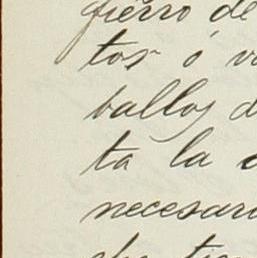 fierro de
tos ó v
ballos d
ta la
necesari